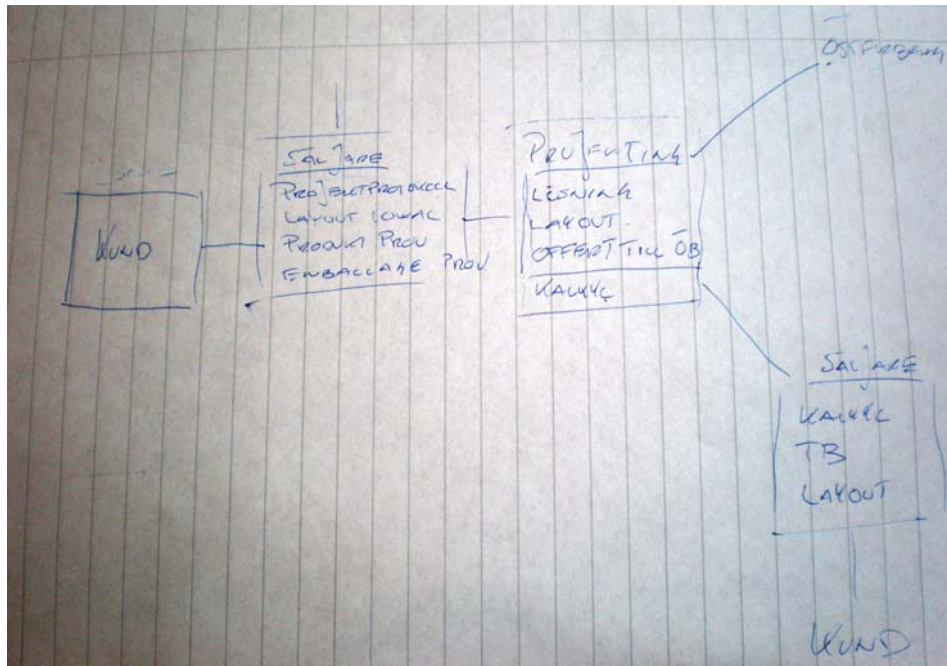 KUND
SÄLJARE
PROJEKTPROTOKOLL
LAYOUT LOKAL
PRODUKT PROV
EMBALLAGE PROV
PROJEKTING
LÖSNING
LAYOUT.
OFFERT TILL ÖB
KALKYL
SÄLJARE
KALKYL
TB
LAYOUT
KUND